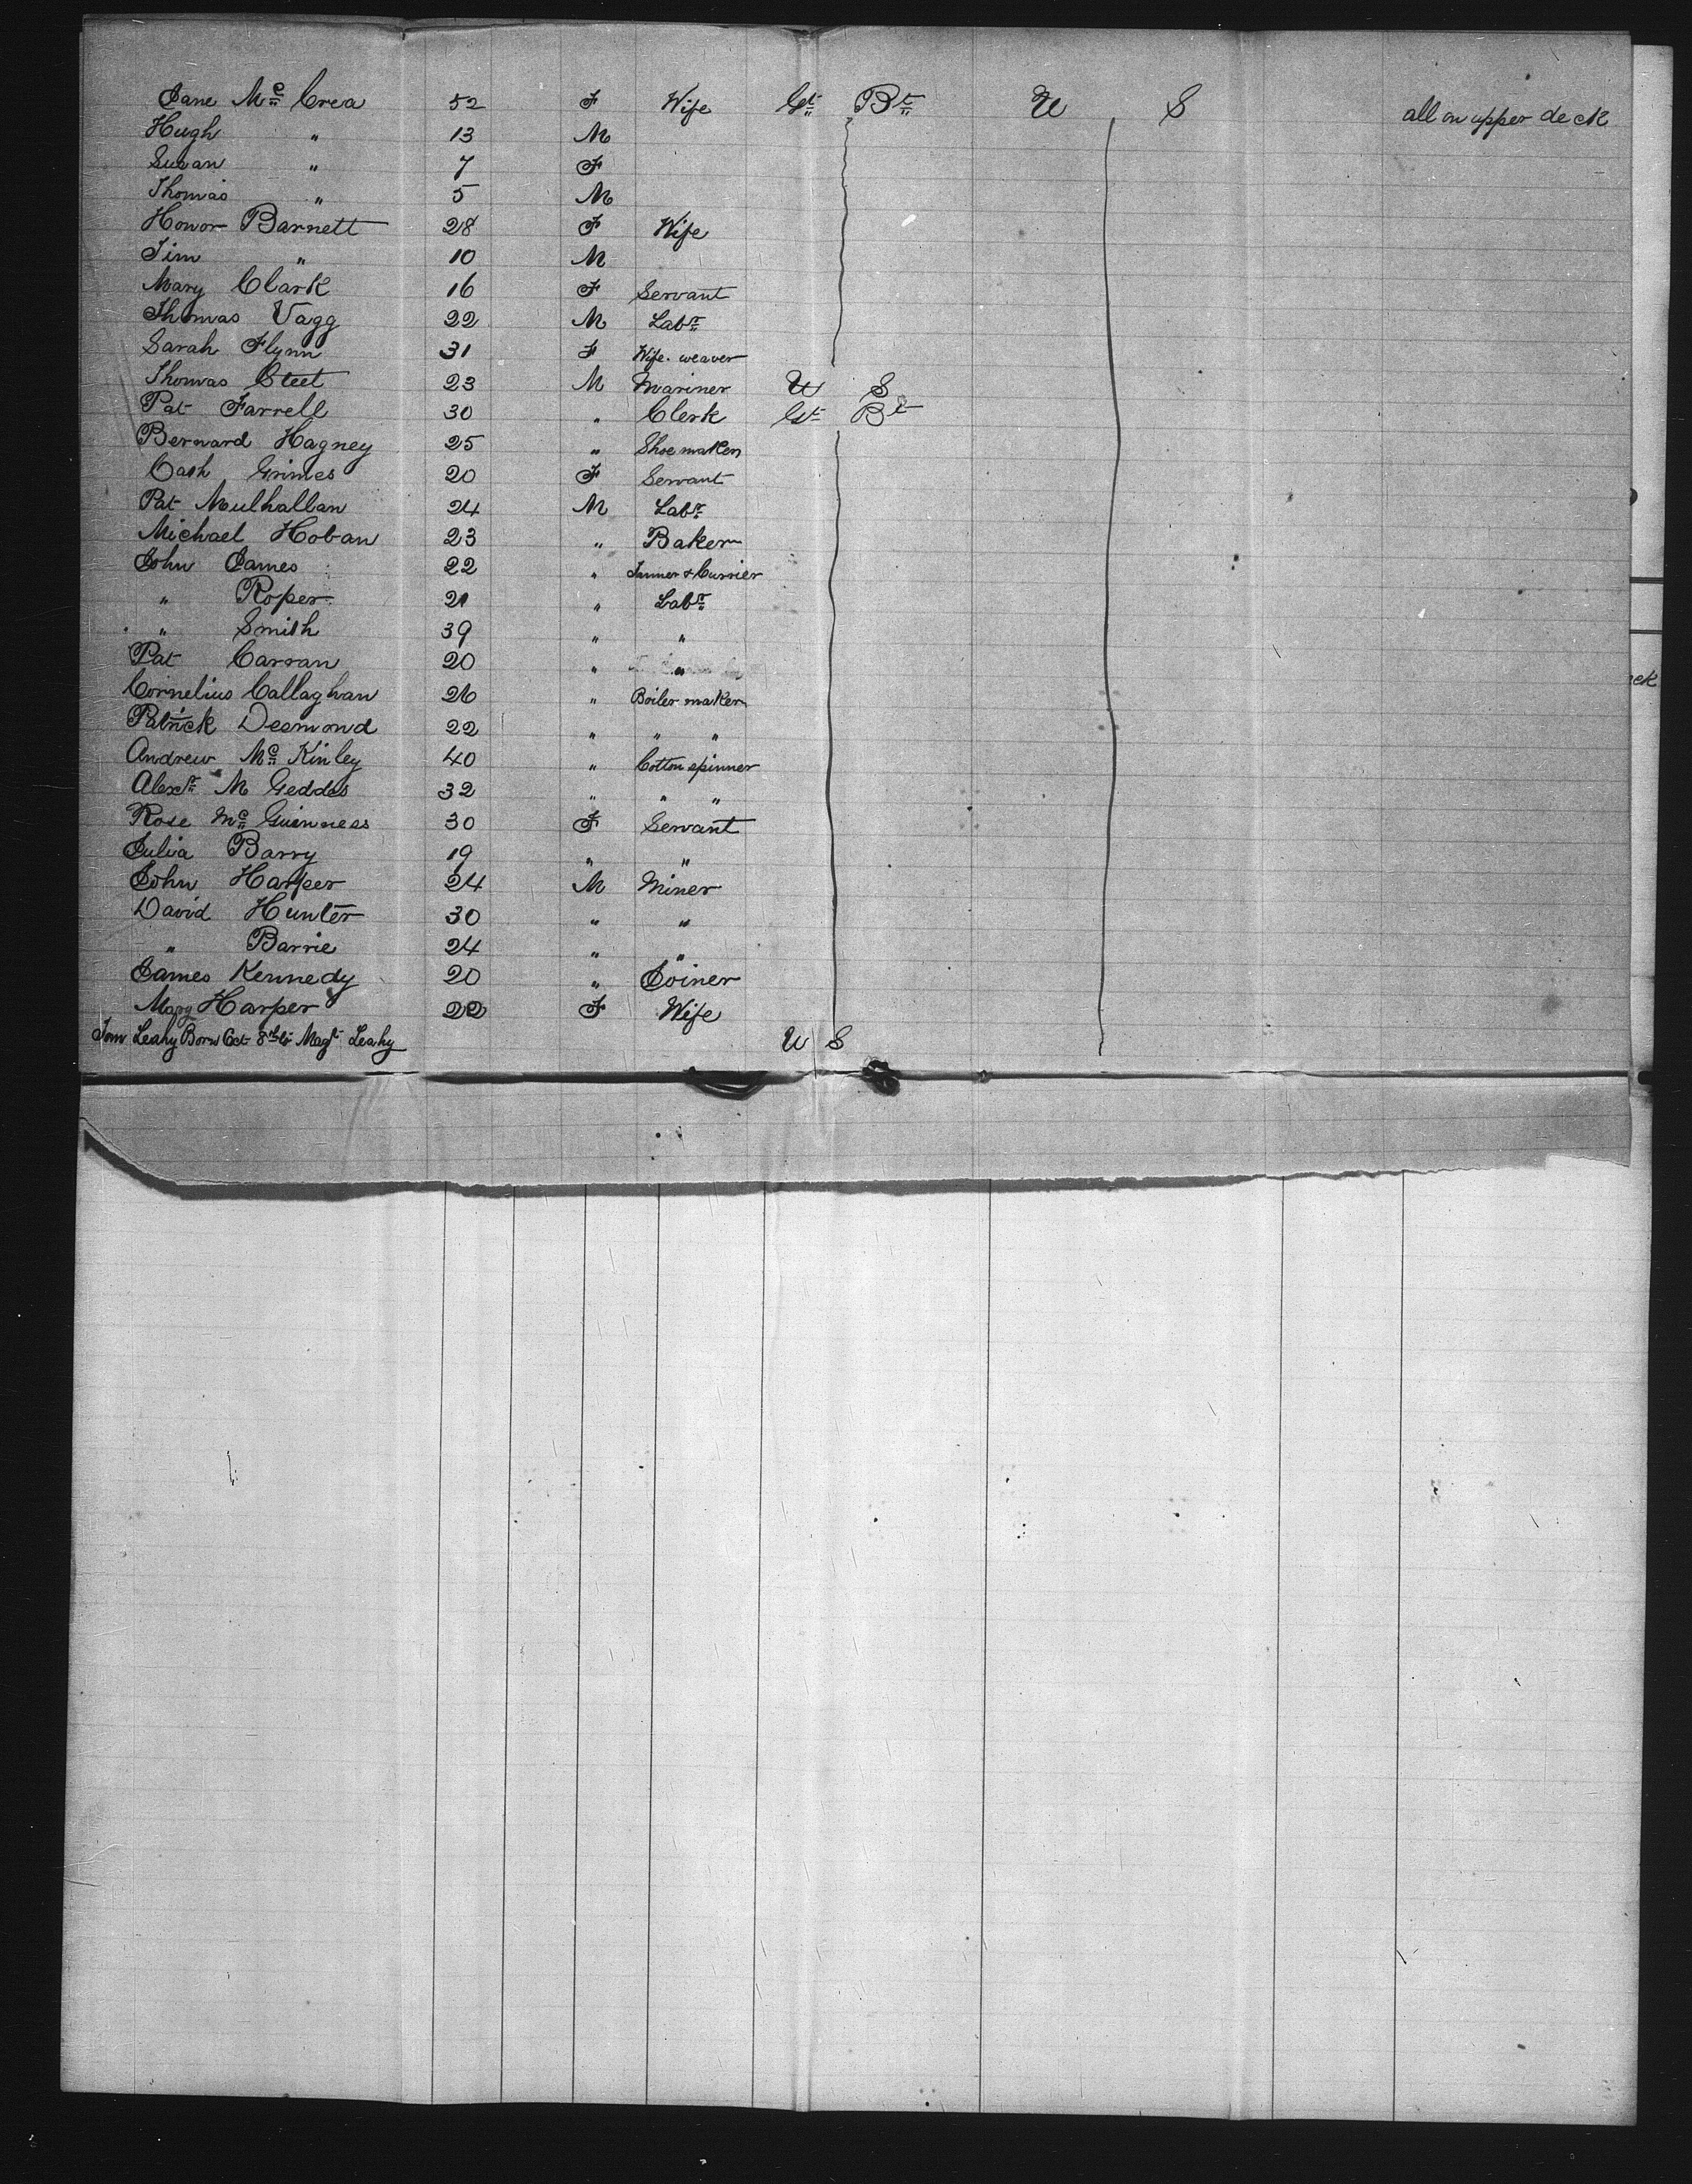 Jane Mc Crea 52 F Wife Gt Bt U S all on upper deck
Hugh " 13 M
Susan " 7 F
Thomas " 5 M
Honor Barnett 28 F Wife
Jim " 10 M
Mary Clark 16 F Servant
Thomas Vagg 22 M Labr
Sarah Flynn 31 F Wife. weaver
Thomas Steet 23 M Mariner U S
Pat Farrell 30 " Clerk Gt Bt
Bernard Hagney 25 " Shoe maker
Cath Grimes 20 F Servant
Pat Mulhallan 24 M Labr
Michael Hoban 23 " Baker
John James 22 " Tanner & Currier
" Roper 21 " Labr
" Smith 39 " "
Pat Carran 20 " "
Cornelius Callaghan 26 " Boiler maker
Patrick Desmond 22 " " "
Andrew Mc Kinley 40 " Cotton spinner
Alexr M Geddes 32 " " "
Rose Mc Guinness 30 F Servant
Julia Barry 19 " "
John Harper 24 M Miner
David Hunter 30 " "
" Barrie 24 " "
James Kennedy 20 " Joiner
Marg Harper 22 F Wife
Tom Leahy Born Oct 8th to Magt Leahy U S